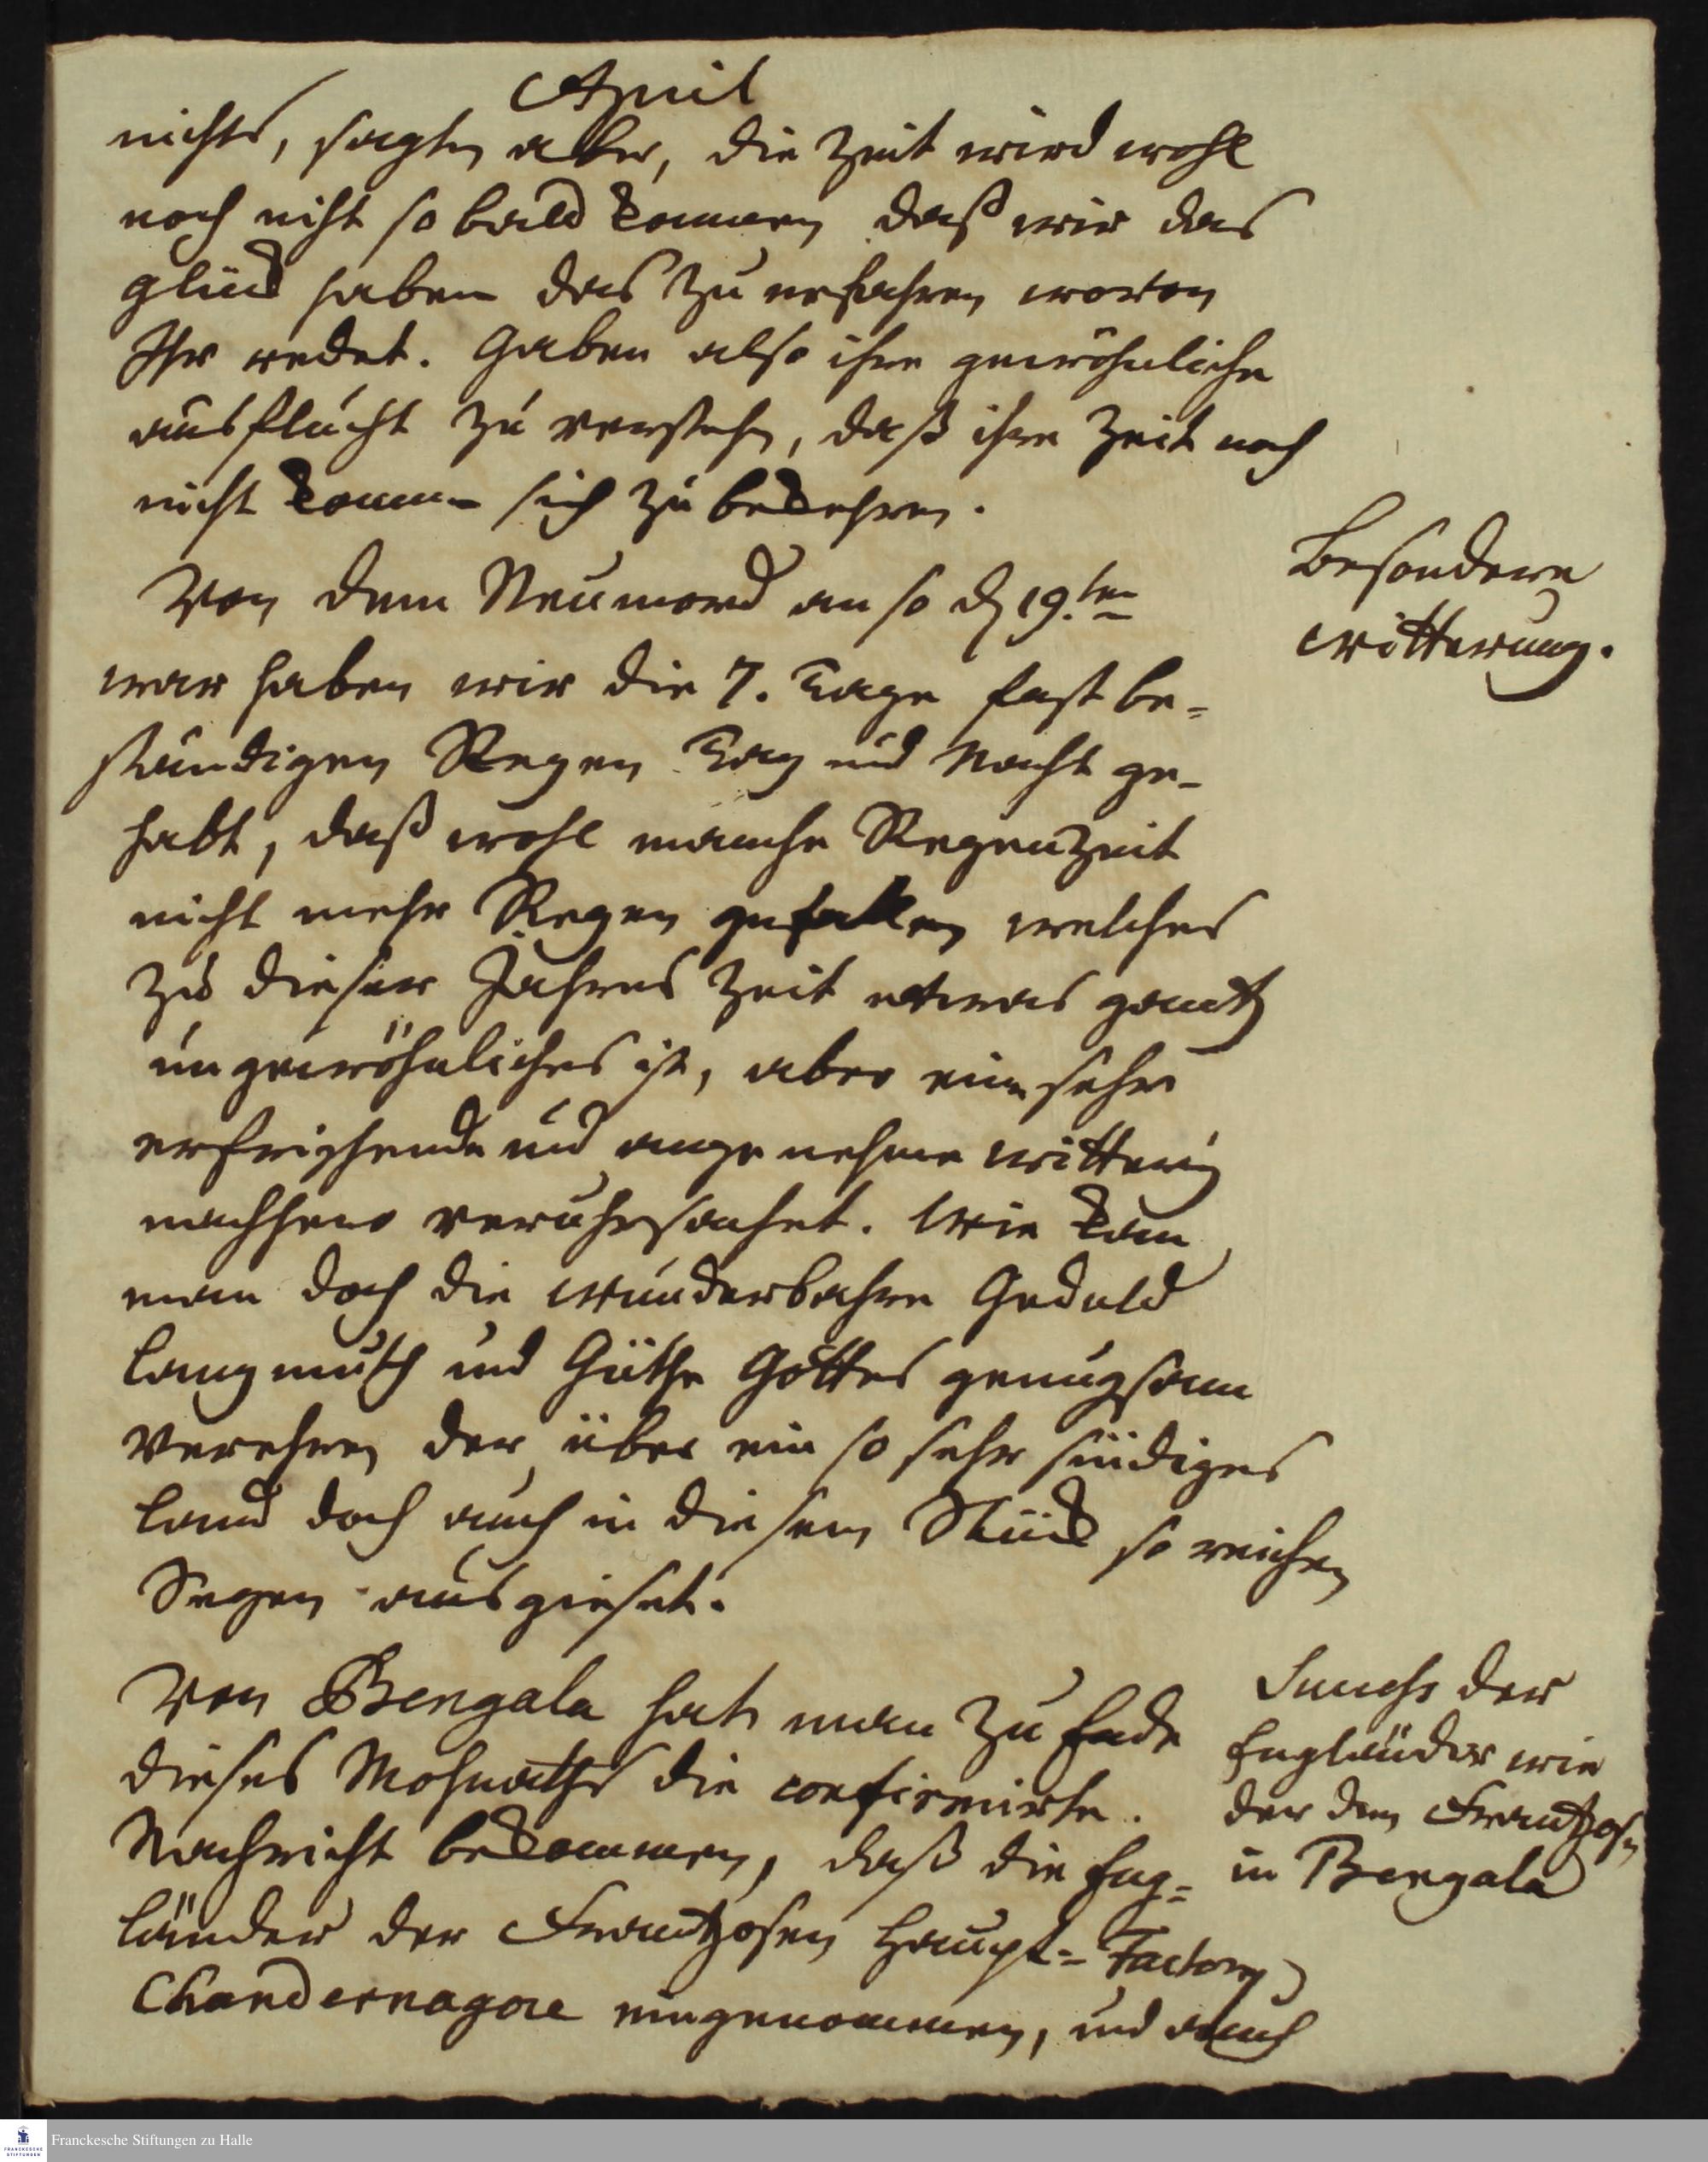 April
nichts, sagten aber, die Zeit wird wohl
noch nicht so bald kommen daß wir das
glück haben das zu erfahren wovon
Ihr redet. Gaben also ihre gewöhnliche
ausflucht zu verstehen, daß ihre Zeit noch
nicht komme sich zu bekehren.
Besondere
Witterung.
Von dem Neumond an so d 19.ten
war haben wir die 7. Tage fast be=
ständigen Regen Tag und Nacht ge-
habt, daß wohl manche Regenzeit
nicht mehr Regen gefallen welches
zu dieser Jahres Zeit etwas gantz
ungewöhnliches ist, aber eine sehr
erfrischende und angenehme Witterung
nachhero veruhrsachet. Wie kan
man doch die wunderbahre Gedult
Langmuth und Güthe Gottes genugsam
Verehren der über ein so sehr sündiges
Land doch auch in diesem Stück so reichen
Segen ausgieset.
Von Bengala hat man zu Ende
dieses Mohnaths die confirmirte.
Nachricht bekommen, daß die Eng=
länder der Frantzosen Haupt=Factory
Chandernagore eingenommen, und auch
der
Engländer wie
der den Frantzosen
in Bengala
Franckesche Stiftungen zu Halle